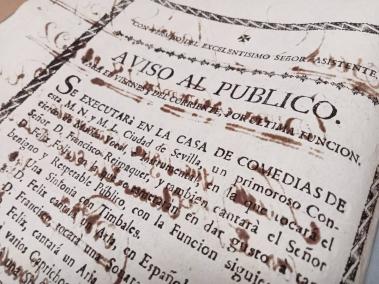 CON PERMISO DEL EXCELENTISIMO SEÑOR ASISTENTE,
AVISO AL PUBLICO.
PARA EL VIERNES DEL CORRIENTE, POR ULTIMA FUNCION,
SE EXECUTARÁ EN LA CASA DE COMEDIAS DE
esta M. N. y M. L. Ciudad de Sevilla, un primoroso Con-
cierto de Musica Vocal, è Instrumental en la que tocará el
Señor D. Francisco y tambien cantará el Señor
D. Felix en dar gusto a tan
benigno y Respetable Público, con la Funcion siguien
Una Sinfonia con Timbales.
D. Felix cantará un Aria, en Español
D. Francisco tocará una Sonata
Felix, cantará un Aria
varios Caprichos
Una